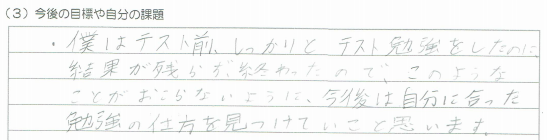 (3) 今後の目標や自分の課題
・僕はテスト前、しっかりと テスト勉強をしたのに、
結果が残らず、終わったので、このような
ことがおこらないように、今後は自分に合った
勉強の仕方を見つけていこと思います。